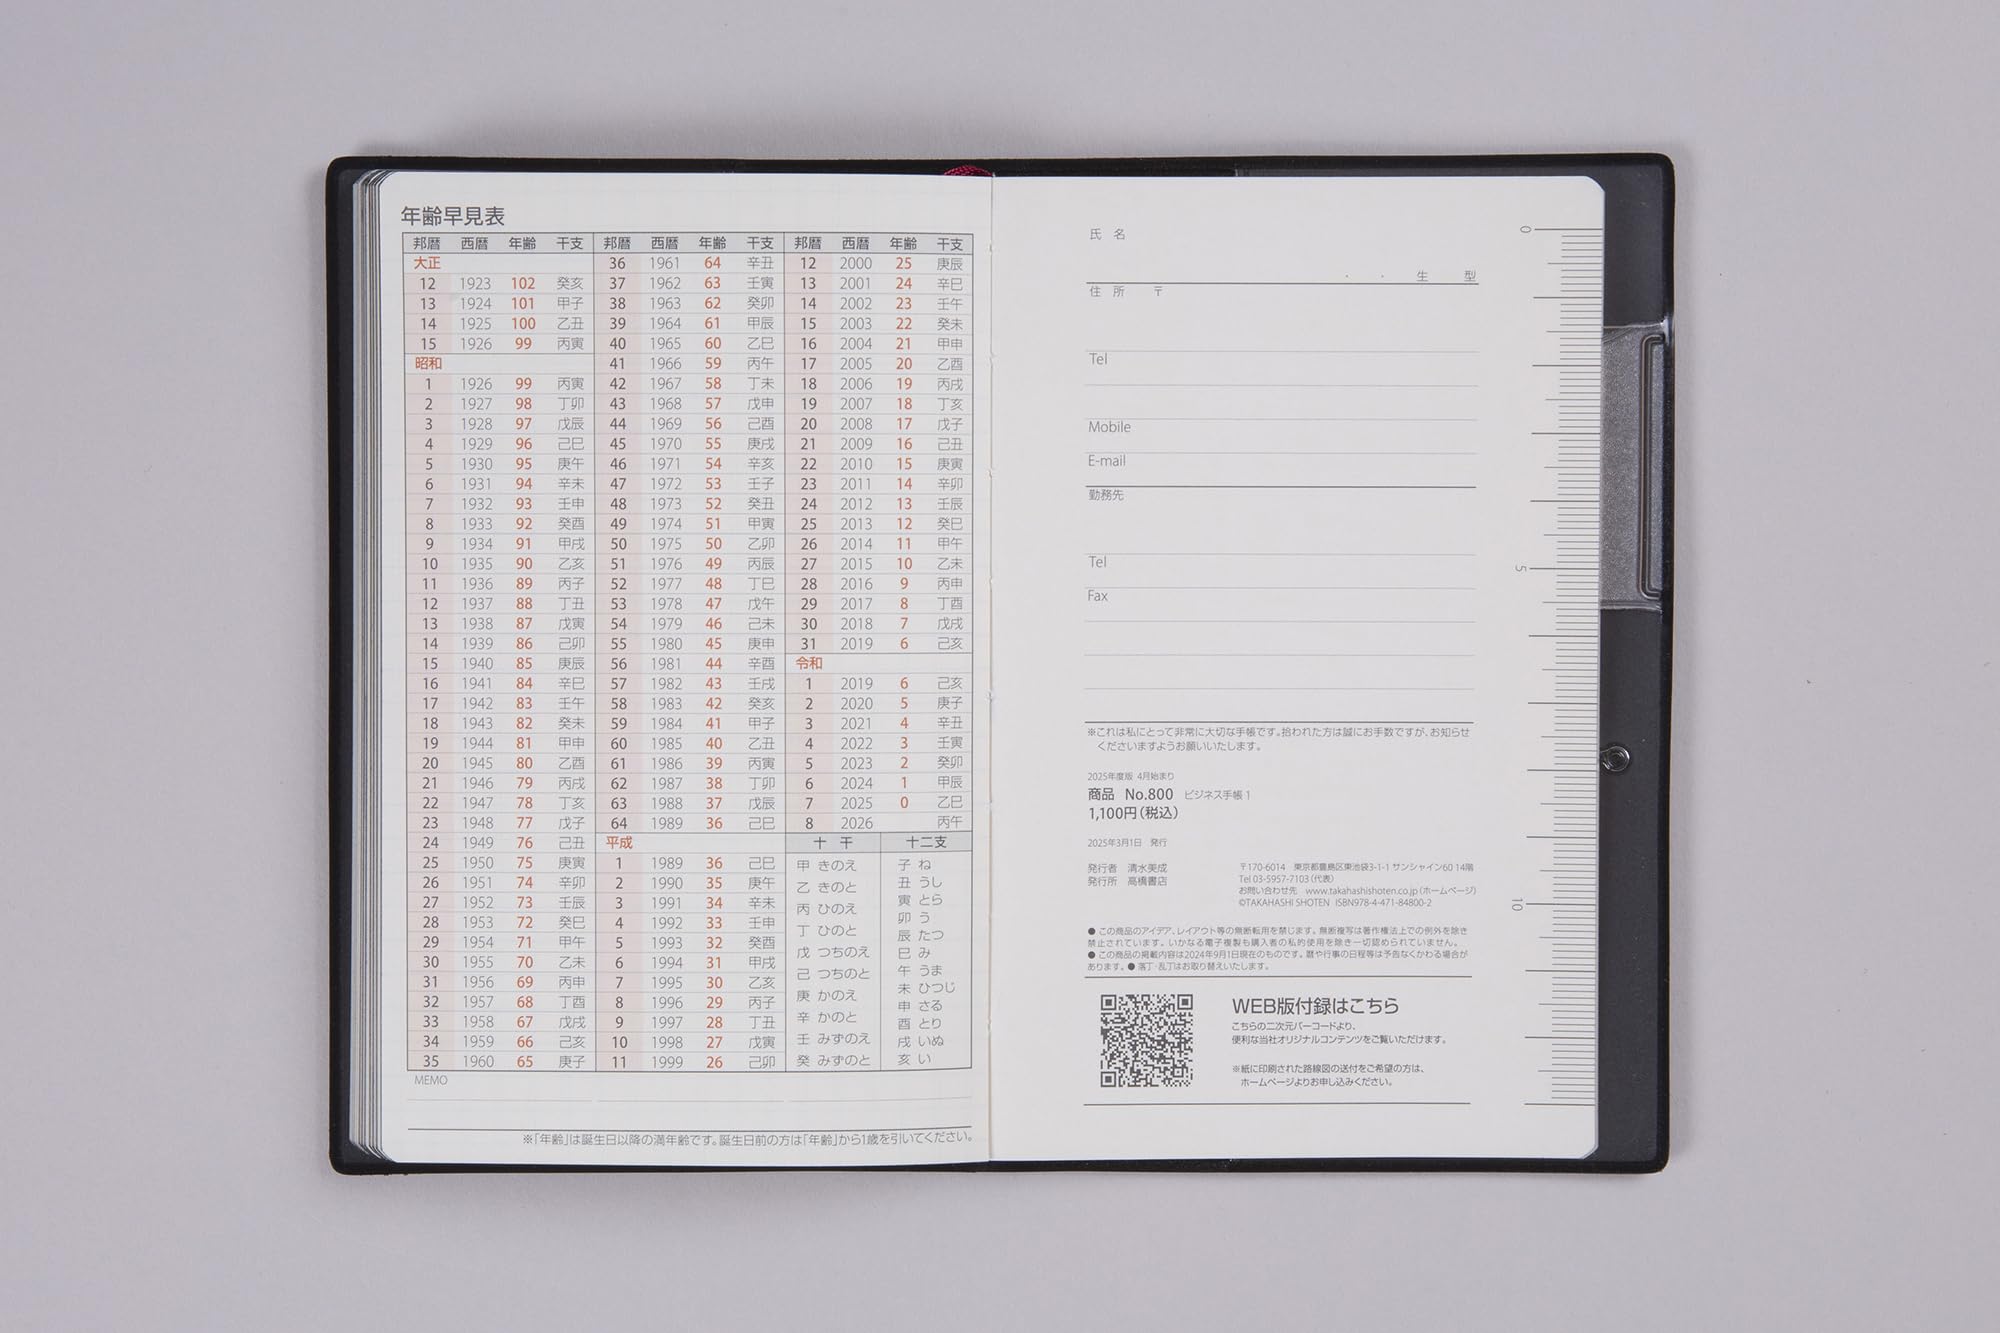 年齢早見表
邦暦 西暦 年齢 干支
大正
12 1923 102 癸亥
13 1924 101 甲子
14 1925 100 乙丑
15 1926 99 丙寅
昭和
1 1926 99 丙寅
2 1927 98 丁卯
3 1928 97 戊辰
4 1929 96 己巳
5 1930 95 庚午
6 1931 94 辛未
7 1932 93 壬申
8 1933 92 癸酉
9 1934 91 甲戌
10 1935 90 乙亥
11 1936 89 丙子
12 1937 88 丁丑
13 1938 87 戊寅
14 1939 86 己卯
15 1940 85 庚辰
16 1941 84 辛巳
17 1942 83 壬午
18 1943 82 癸未
19 1944 81 甲申
20 1945 80 乙酉
21 1946 79 丙戌
22 1947 78 丁亥
23 1948 77 戊子
24 1949 76 己丑
25 1950 75 庚寅
26 1951 74 辛卯
27 1952 73 壬辰
28 1953 72 癸巳
29 1954 71 甲午
30 1955 70 乙未
31 1956 69 丙申
32 1957 68 丁酉
33 1958 67 戊戌
34 1959 66 己亥
35 1960 65 庚子
邦暦 西暦 年齢 干支
36 1961 64 辛丑
37 1962 63 壬寅
38 1963 62 癸卯
39 1964 61 甲辰
40 1965 60 乙巳
41 1966 59 丙午
42 1967 58 丁未
43 1968 57 戊申
44 1969 56 己酉
45 1970 55 庚戌
46 1971 54 辛亥
47 1972 53 壬子
48 1973 52 癸丑
49 1974 51 甲寅
50 1975 50 乙卯
51 1976 49 丙辰
52 1977 48 丁巳
53 1978 47 戊午
54 1979 46 己未
55 1980 45 庚申
56 1981 44 辛酉
57 1982 43 壬戌
58 1983 42 癸亥
59 1984 41 甲子
60 1985 40 乙丑
61 1986 39 丙寅
62 1987 38 丁卯
63 1988 37 戊辰
64 1989 36 己巳
平成
1 1989 36 己巳
2 1990 35 庚午
3 1991 34 辛未
4 1992 33 壬申
5 1993 32 癸酉
6 1994 31 甲戌
7 1995 30 乙亥
8 1996 29 丙子
9 1997 28 丁丑
10 1998 27 戊寅
11 1999 26 己卯
邦暦 西暦 年齢 干支
12 2000 25 庚辰
13 2001 24 辛巳
14 2002 23 壬午
15 2003 22 癸未
16 2004 21 甲申
17 2005 20 乙酉
18 2006 19 丙戌
19 2007 18 丁亥
20 2008 17 戊子
21 2009 16 己丑
22 2010 15 庚寅
23 2011 14 辛卯
24 2012 13 壬辰
25 2013 12 癸巳
26 2014 11 甲午
27 2015 10 乙未
28 2016 9 丙申
29 2017 8 丁酉
30 2018 7 戊戌
31 2019 6 己亥
令和
1 2019 6 己亥
2 2020 5 庚子
3 2021 4 辛丑
4 2022 3 壬寅
5 2023 2 癸卯
6 2024 1 甲辰
7 2025 0 乙巳
8 2026 丙午
十 干
甲 きのえ
乙 きのと
丙 ひのえ
丁 ひのと
戊 つちのえ
己 つちのと
庚 かのえ
辛 かのと
壬 みずのえ
癸 みずのと
十二支
子 ね
丑 うし
寅 とら
卯 う
辰 たつ
巳 み
午 うま
未 ひつじ
申 さる
酉 とり
戌 いぬ
亥 い
MEMO
※「年齢」は誕生日以降の満年齢です。誕生日前の方は「年齢」から1歳を引いてください。
氏 名
・ ・ 生 型
住 所 〒
Tel
Mobile
E-mail
勤務先
Tel
Fax
※これは私にとって非常に大切な手帳です。拾われた方は誠にお手数ですが、お知らせ
くださいますようお願いいたします。
2025年度版 4月始まり
商品 No.800 ビジネス手帳 1
1,100円(税込)
2025年3月1日 発行
発行者 清水美成
発行所 高橋書店
〒170-6014 東京都豊島区東池袋3-1-1 サンシャイン60 14階
Tel 03-5957-7103(代表)
お問い合わせ先 www.takahashishoten.co.jp(ホームページ)
©TAKAHASHI SHOTEN ISBN978-4-471-84800-2
● この商品のアイデア、レイアウト等の無断転用を禁じます。無断複写は著作権法上での例外を除き
禁止されています。いかなる電子複製も購入者の私的使用を除き一切認められていません。
● この商品の掲載内容は2024年9月1日現在のものです。暦や行事の日程等は予告なくかわる場合が
あります。● 落丁・乱丁はお取り替えいたします。
WEB版付録はこちら
こちらの二次元バーコードより、
便利な当社オリジナルコンテンツをご覧いただけます。
※紙に印刷された路線図の送付をご希望の方は、
ホームページよりお申し込みください。
0
5
10